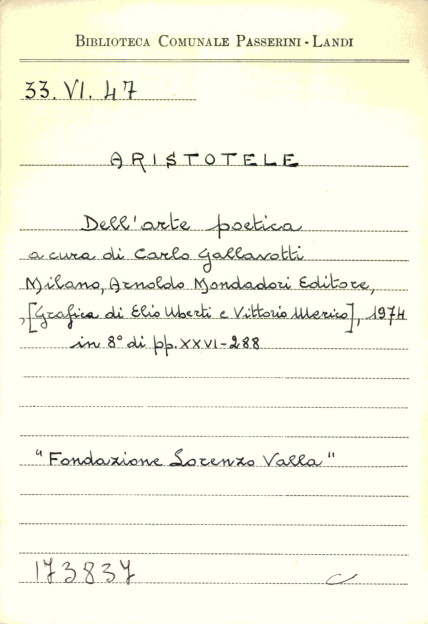 BIBLIOTECA COMUNALE PASSERINI - LANDI
33. VI. 47
ARISTOTELE
Dell'arte poetica
a cura di Carlo Gallavotti
Milano, Arnoldo Mondadori Editore,
,[Grafica di Elio Uberti e Vittorio Merico], 1974
in 8° di pp. XXVI-288
"Fondazione Lorenzo Valla"
173837
C